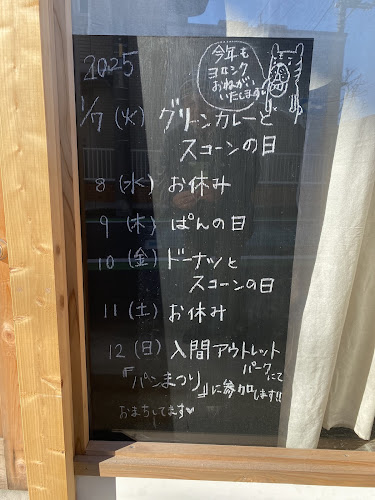 2025
今年も
ヨロシク
おねがい
いたします。
1/7 (火) グリーンカレーと
スコーンの日
8 (水) お休み
9 (木) ぱんの日
10 (金) ドーナツと
スコーンの日
11 (土) お休み
12 (日) 入間アウトレット
パークにて
『パンまつり』に参加します!!
おまちしてます♡